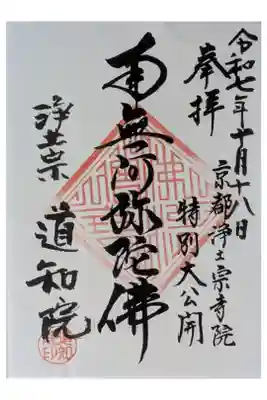 令和七年十月十八日
奉拝
京都浄土宗寺院
特別大公開
南無阿弥陀佛
浄土宗
道知院